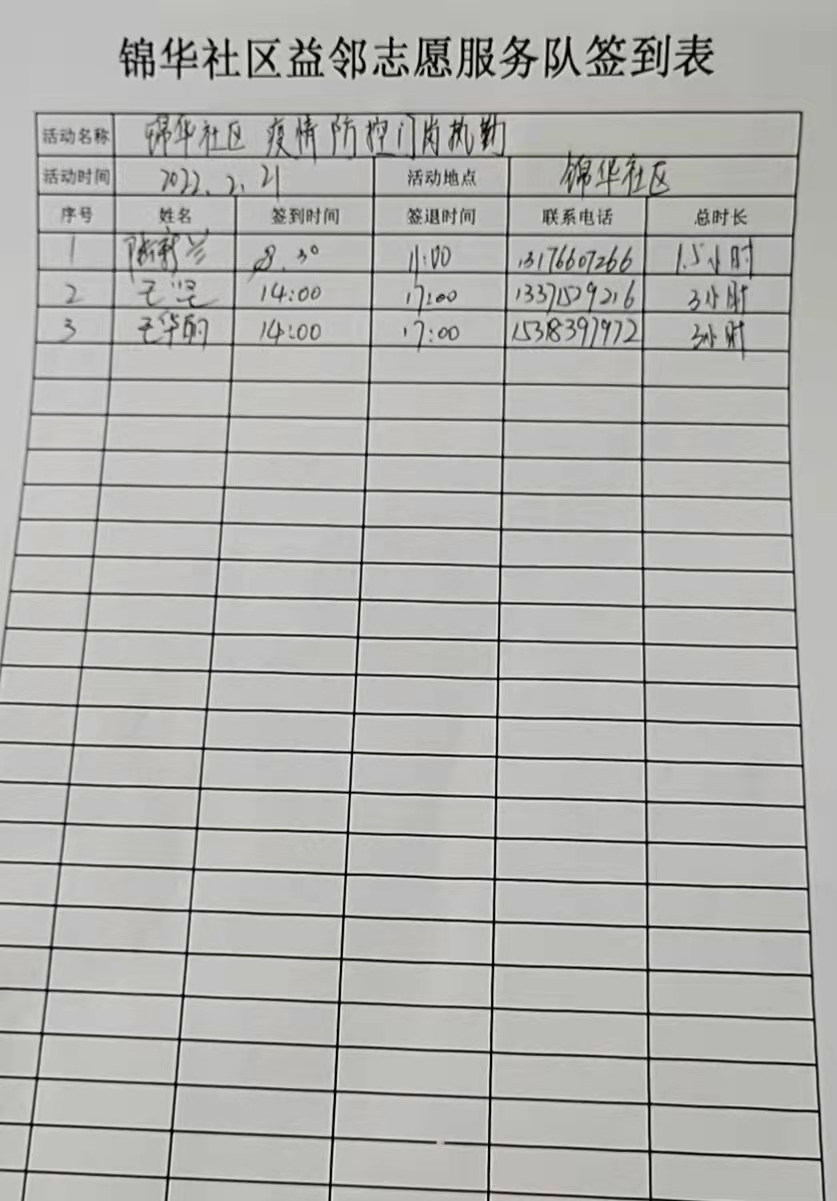 锦华社区益邻志愿服务队签到表
活动名称 锦华社区 疫情防控门岗执勤
活动时间 2022.2.21 活动地点 锦华社区
序号 姓名 签到时间 签退时间 联系电话 总时长
1 陈新兰 8.30 11:00 13176607266 1.5小时
2 王坚 14:00 17:00 13371529216 3小时
3 14:00 17:00 15318397972 3小时